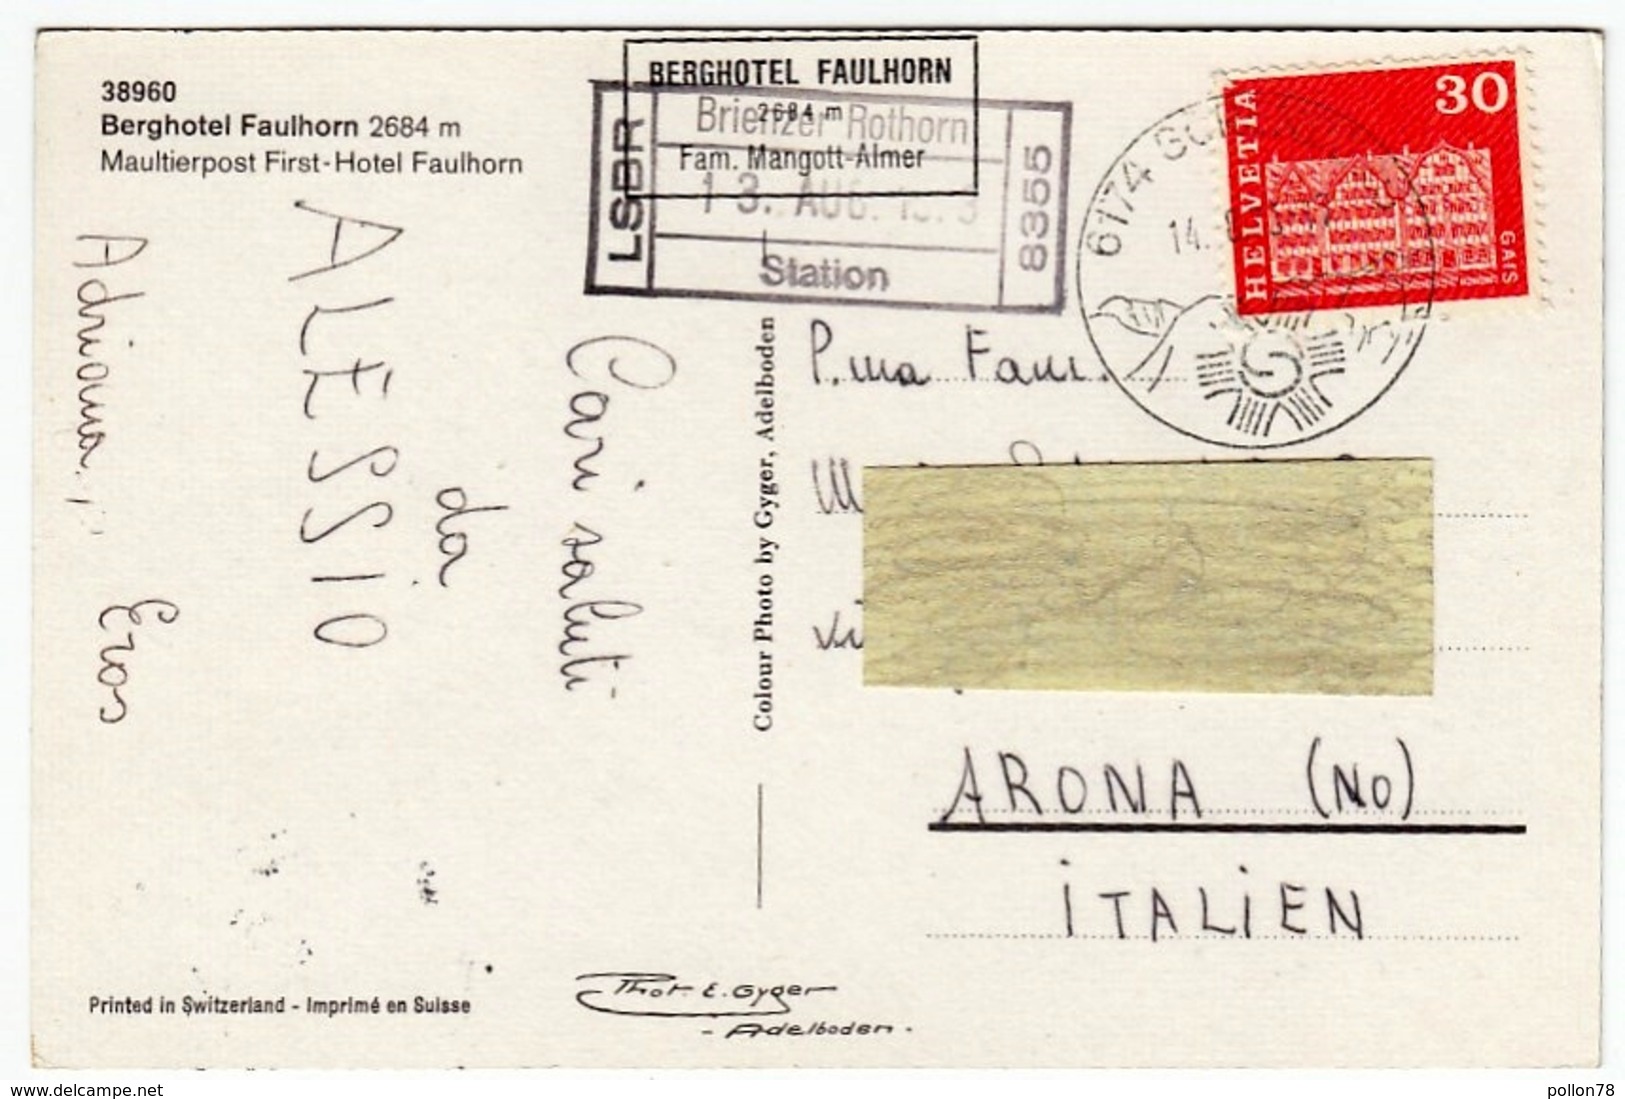 38960
Berghotel Faulhorn 2684 m
Maultierpost First-Hotel Faulhorn
BERGHOTEL FAULHORN
2684 m
Fam. Mangott-Almer
LSBR
Brienzer Rothorn
13. AUG.
Station
8355
6174
14.
HELVETIA
30
GAIS
Cari saluti
da
ALESSIO
Adriana,
Eros
Colour Photo by Gyger, Adelboden
P.ma Fam.
ARONA (NO)
ITALIEN
Printed in Switzerland - Imprimé en Suisse
Phot. E. Gyger
- Adelboden -
www.delcampe.net
pollon78